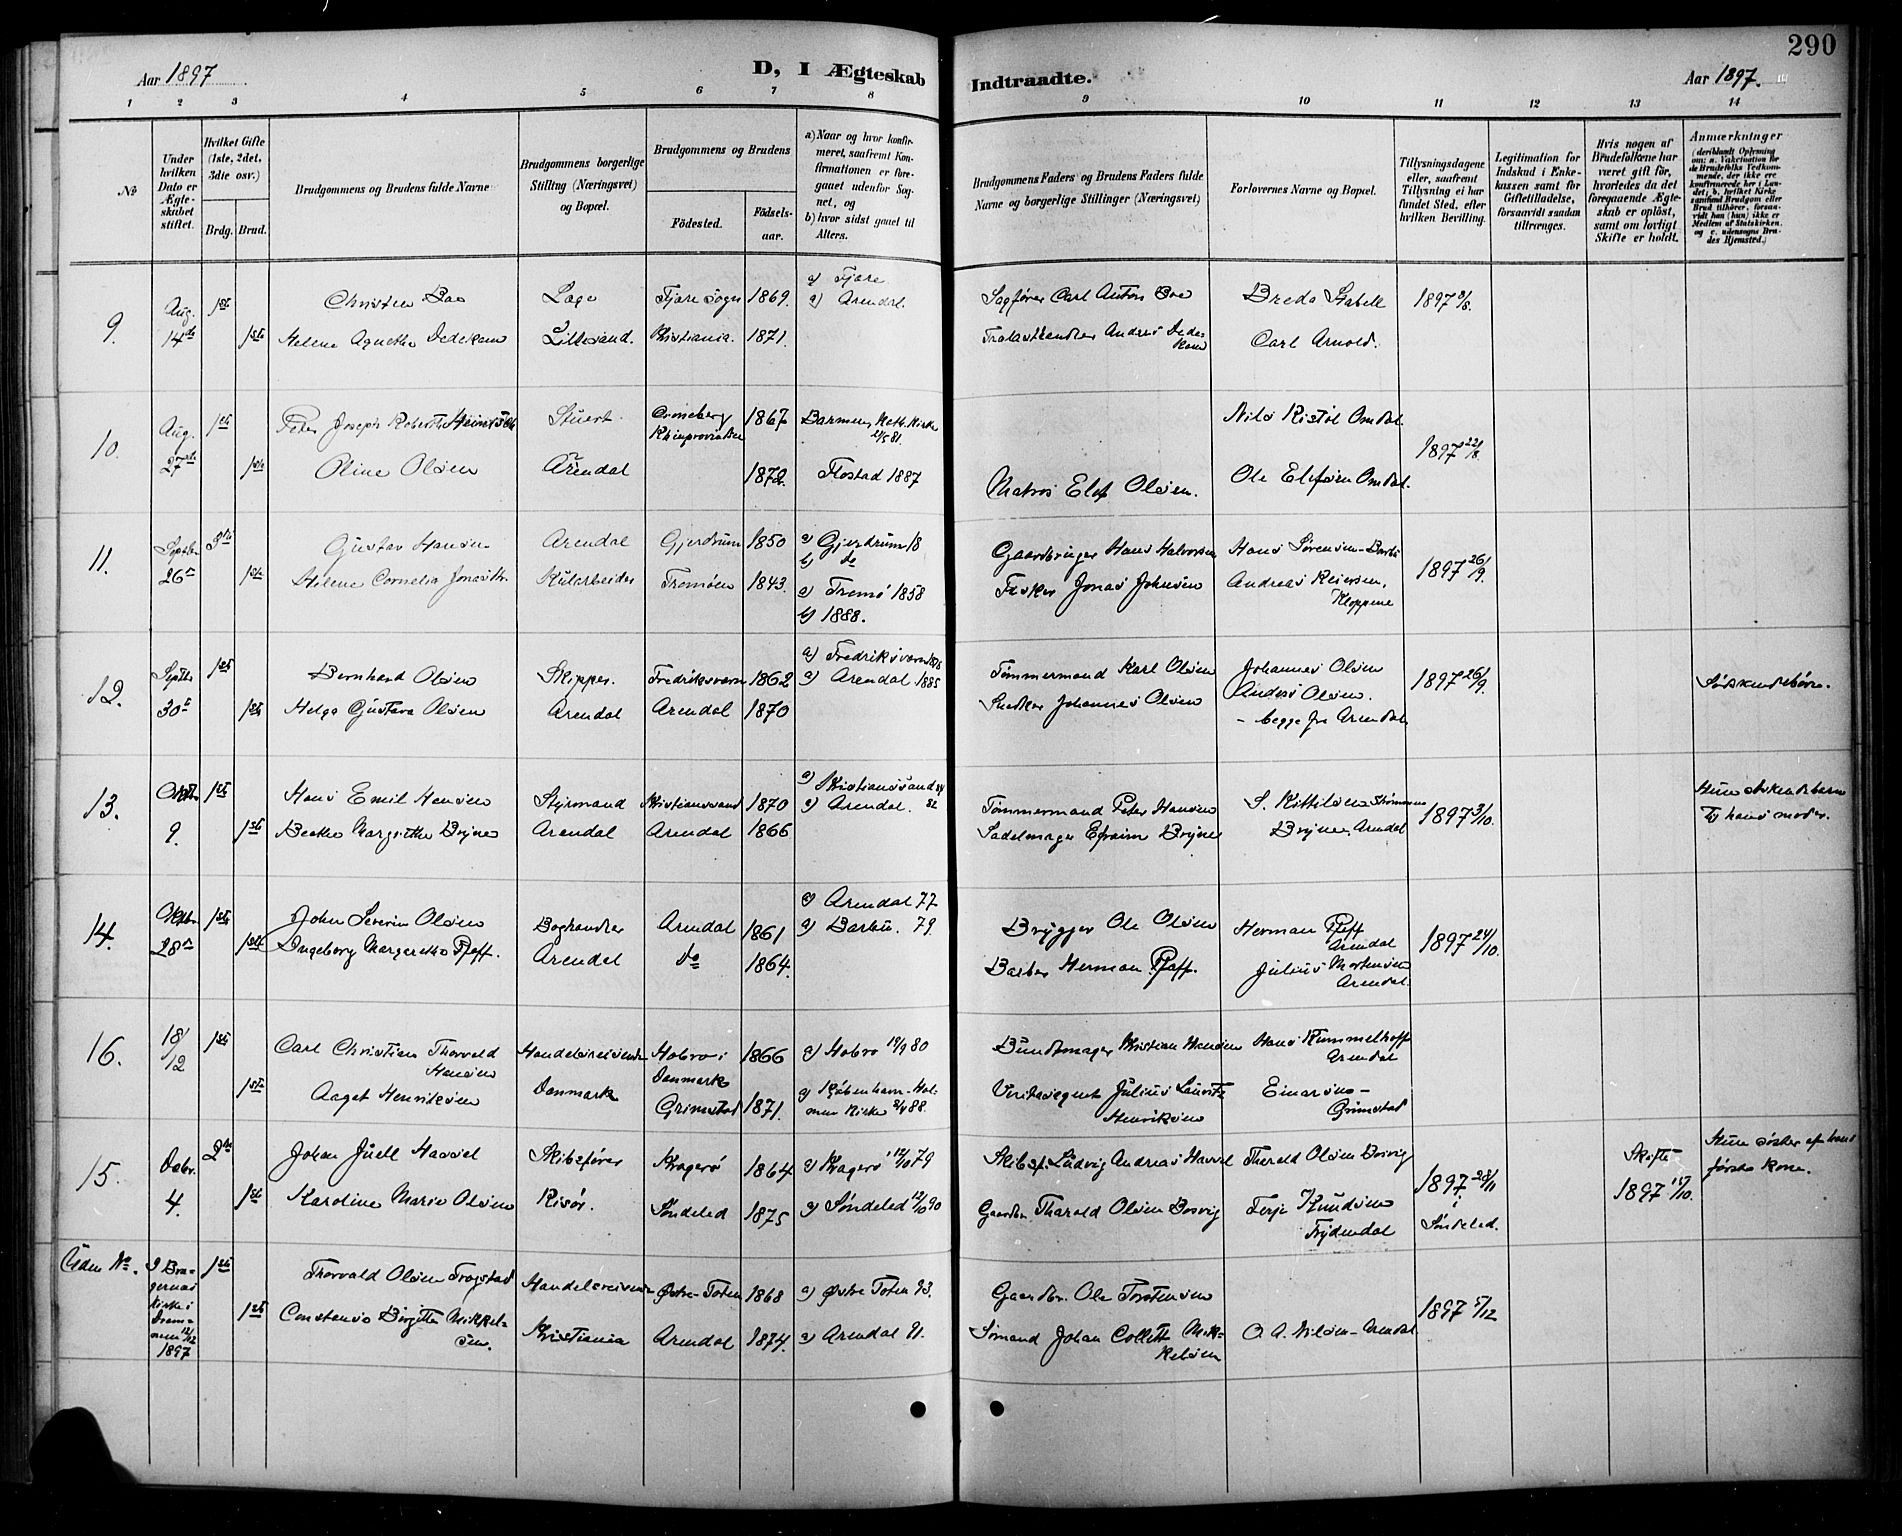 290
Aar 1897
D, I Ægteskab
Indtraadte.
Aar 1897.
1 2 3 4 5 6 7 8 9 10 11 12 13 14
No
Under hvilken Dato er Ægteskabet stiftet.
Hvilket Gifte (1ste, 2det, 3die osv.)
Brdg. Brud.
Brudgommens og Brudens fulde Navne
Brudgommens borgerlige Stilling (Næringsvei) og Bopæl.
Brudgommens og Brudens
Födested.
Födselsaar.
a) Naar og hvor konfirmeret, saafremt Konfirmationen er foregaaet udenfor Sognet, og
b) hvor sidst gaaet til Alters.
Brudgommens Faders og Brudens Faders fulde Navne og borgerlige Stillinger (Næringsvei)
Forlovernes Navne og Bopæl.
Tillysningsdagene eller, saafremt Tillysning ei har fundet Sted, efter hvilken Bevilling.
Legitimation for Indskud i Enkekassen samt for Giftetilladelse, forsaavidt saadan tiltrænges.
Hvis nogen af Brudefolkene har været gift för, hvorledes da det foregaaende Ægteskab er oplöst, samt om lovligt Skifte er holdt.
Anmærkninger
(deriblandt Oplysning om: a. Vakcination for de Brudefolks Vedkommende, der ikke ere konfirmerede her i Landet; b. hvilket Kirkesamfund Brudgom eller Brud tilhörer, forsaavidt han (hun) ikke er Medlem af Statskirken, og c. udensogns Brudes Hjemsted.)
9. Aug. 14de 1ste Christen Boe Læge Fjære Sogn 1869. a) Fjære Sagfører Carl Anton Boe Breda Stabell 1897 8/8.
a) Arendal
1ste Helene Agnethe Dedekam Lillesand. Christiania. 1871. Trælasthandler Andreas Dedekam Carl Arnold.
10. Aug. 27de 1ste Peter Joseph Robert Stuert 1867 Barmen Kath. Kirke 21/5 81. Nils Ristøl Omdal. 1897 22/8.
1ste Oline Olsen Arendal 1872. Flostad 1887 Matros Elef Olsen. Ole Elefsen Omdal.
11. Septbr 26de Gustav Hansen Arendal Gjerdrum 1850 a) Gjerdrum 18 Gaardbruger Hans Halvorsen Hans Sørensen-Barbo 1897 26/9.
b) do
1ste Helene Cornelia Kularbeider Tromøen 1843. a) Tromø 1858 Fisker Jonas Johnsen Andreas Reiersen, Kloppene
b) 1888.
12. Septbr 30te 1ste Bernhard Olsen Skipper. Fredriksværn 1862 a) Fredriksværn Tømmermand Karl Olsen Johannes Olsen 1897 26/9. Søskendebørn.
a) Arendal 1885
1ste Helga Gustava Olsen Arendal Arendal 1870 Snedker Johannes Olsen Anders Olsen.
- begge fra Arendal
13. Oktbr 9. 1ste Hans Emil Hansen Styrmand Kristianssand 1870 a) Kristianssand Tømmermand Peter Hansen S. Kittilsen 1897 3/10. Hun søskendebarn
a) Arendal. 82 til hans moder.
1ste Beathe Margrethe Brijne Arendal Arendal 1866 Sadelmager Efraim Brijne Brijne, Arendal
14. Oktbr 28de 1ste John Severin Olsen Boghandler Arendal 1861 a) Arendal 77 Brygger Ole Olsen Herman Pfaff Arendal 1897 24/10.
a) Barbu. 79.
1ste Ingeborg Margrethe Pfaff. Arendal do 1864. Barber Herman Pfaff. Julius Mortensen Arendal.
16. 18/12 1ste Carl Christian Thorvald Hansen Handelsreisende Hobro i Danmark 1866 a) Hobro 80 Bundtmager Kristian Hansen Hans Kummelhoff Arendal
1ste Aagot Henriksen Danmark Grimstad 1871. a) København-Holmens Kirke 88. Veritasagent Julius Lauritz Henriksen Einarsen-Grimstad
15. Debr. 4. 2de Johan Juell Hassel Skibsfører Kragerø 1864 a) Kragerø 12/10 79 Skibsf. Ludvig Andreas Hassel Tharald Olsen Bosvig 1897 28/11 i Søndeled. Skifte 1897 15/10. Hun søster af hans første kone.
1ste Karoline Marie Olsen Risør. Søndeled 1875 a) Søndeled 12/10 90 Gaardbr. Tharald Olsen Bosvig Terje Knudsen Frydendal
Uden No. I Bragernæs kirke i Drammen 12/12 1897 1ste Thorvald Olsen Trogstad Handelsreisende Østre-Toten 1868 a) Østre Toten 83. Gaardbr. Ole Torstensen 1897 5/12
1ste Constanse Birgitte Mikkelsen. Kristiania Arendal 1874. a) Arendal 91. Sømand Johan Collett Mikkelsen O. A. Nilsen-Arendal